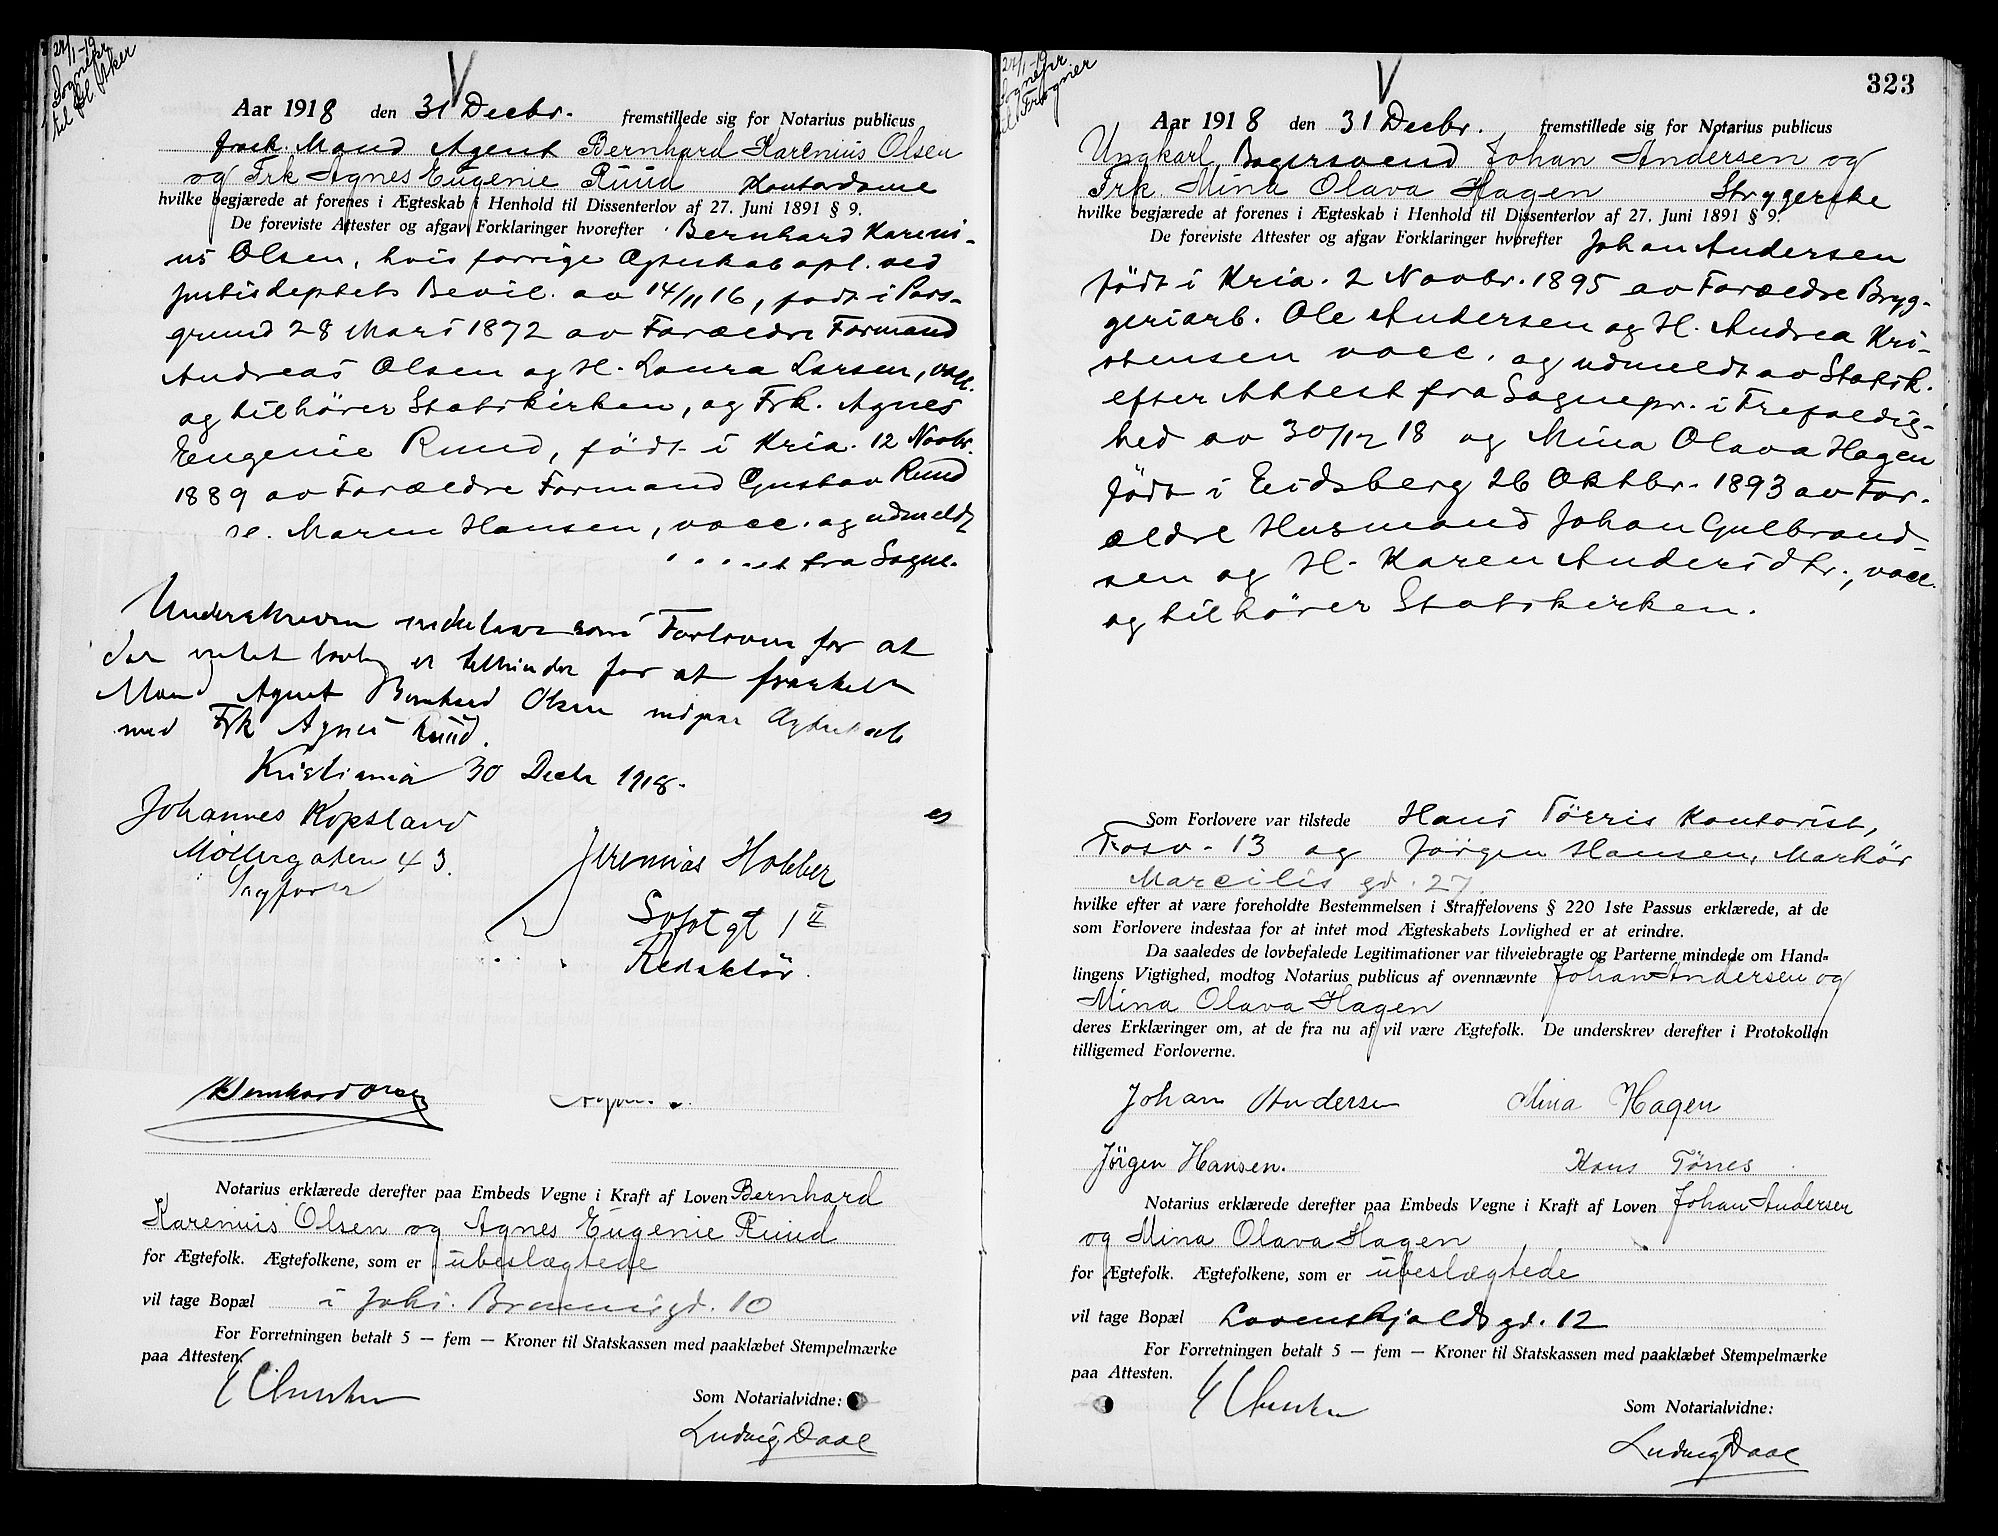 24/1-19
Sognepr
til Gl. Aker
Aar 1918 den 31 Decbr. fremstillede sig for Notarius publicus
frask. Mand Agent Bernhard Karenius Olsen
og Frk Agnes Eugenie Ruud Kontordame
hvilke begjærede at forenes i Ægteskab i Henhold til Dissenterlov af 27. Juni 1891 § 9.
De foreviste Attester og afgav Forklaringer hvorefter Bernhard Kareni-
us Olsen, hvis forrige Ægteskab opl. ved
Justisdeptets Bevil. av 14/11 16, født i Pors-
grund 28 Mars 1872 av Forældre Formand
Andreas Olsen og H. Laura Larsen, vacc.
og tilhörer Statskirken, og Frk. Agnes
Eugenie Ruud, födt i Kria. 12 Novbr.
1889 av Forældre Formand Gustav Ruud
H. Maren Hansen, vacc. og udmeldt
fra Sogne-
Underskrevne indestaar som Forlovere for at
der intet lovlig er tilhinder for at fraskilt
Mand Agent Bernhard Olsen indgaar Ægteskab
med Frk Agnes Ruud.
Kristiania 30 Decbr 1918.
Johannes Kopsland
Møllergaten 43.
Sagfører
Jeremias Hobber
Sofagt 1 II
Redaktör.
er
Bernhard Olsen
Notarius erklærede derefter paa Embeds Vegne i Kraft af Loven Bernhard
Karenius Olsen og Agnes Eugenie Ruud
for Ægtefolk. Ægtefolkene, som er ubeslægtede
vil tage Bopæl i Johs. Brunsgd. 10
For Forretningen betalt 5 — fem — Kroner til Statskassen med paaklæbet Stempelmærke
paa Attesten.
Som Notarialvidne:
Ludvig Daae
323
24/1-19
Sognepr
til Frogner
Aar 1918 den 31 Decbr. fremstillede sig for Notarius publicus
Ungkarl, Bagersvend Johan Andersen og
Frk. Mina Olava Hagen Strygerske
hvilke begjærede at forenes i Ægteskab i Henhold til Dissenterlov af 27. Juni 1891 § 9.
De foreviste Attester og afgav Forklaringer hvorefter Johan Andersen
födt i Kria. 2 Novbr. 1895 av Forældre Bryg-
geriarb. Ole Andersen og H. Andrea Kri-
stensen vacc. og udmeldt av Statsk.
efter Attest fra Sognepr. i Trefoldig-
hed av 30/12 18 og Mina Olava Hagen
födt i Eidsberg 26 Oktbr. 1893 av For-
ældre Husmand Johan Gulbrand-
sen og H. Karen Andersdtr., vacc.
og tilhörer Statskirken.
Som Forlovere var tilstede Hans Törris Kontorist,
Fossv. 13 og Jörgen Hansen, Markör
Marcilis gd. 27.
hvilke efter at være foreholdte Bestemmelsen i Straffelovens § 220 1ste Passus erklærede, at de
som Forlovere indestaa for at intet mod Ægteskabets Lovlighed er at erindre.
Da saaledes de lovbefalede Legitimationer var tilveiebragte og Parterne mindede om Hand-
lingens Vigtighed, modtog Notarius publicus af ovennævnte Johan Andersen og
Mina Olava Hagen
deres Erklæringer om, at de fra nu af vil være Ægtefolk. De underskrev derefter i Protokollen
tilligemed Forloverne.
Johan Andersen Mina Hagen
Jörgen Hansen. Hans Törres
Notarius erklærede derefter paa Embeds Vegne i Kraft af Loven Johan Andersen
og Mina Olava Hagen
for Ægtefolk. Ægtefolkene, som er ubeslægtede
vil tage Bopæl Lovenskjoldsgd. 12
For Forretningen betalt 5 — fem — Kroner til Statskassen med paaklæbet Stempelmærke
paa Attesten.
Som Notarialvidne:
Ludvig Daae